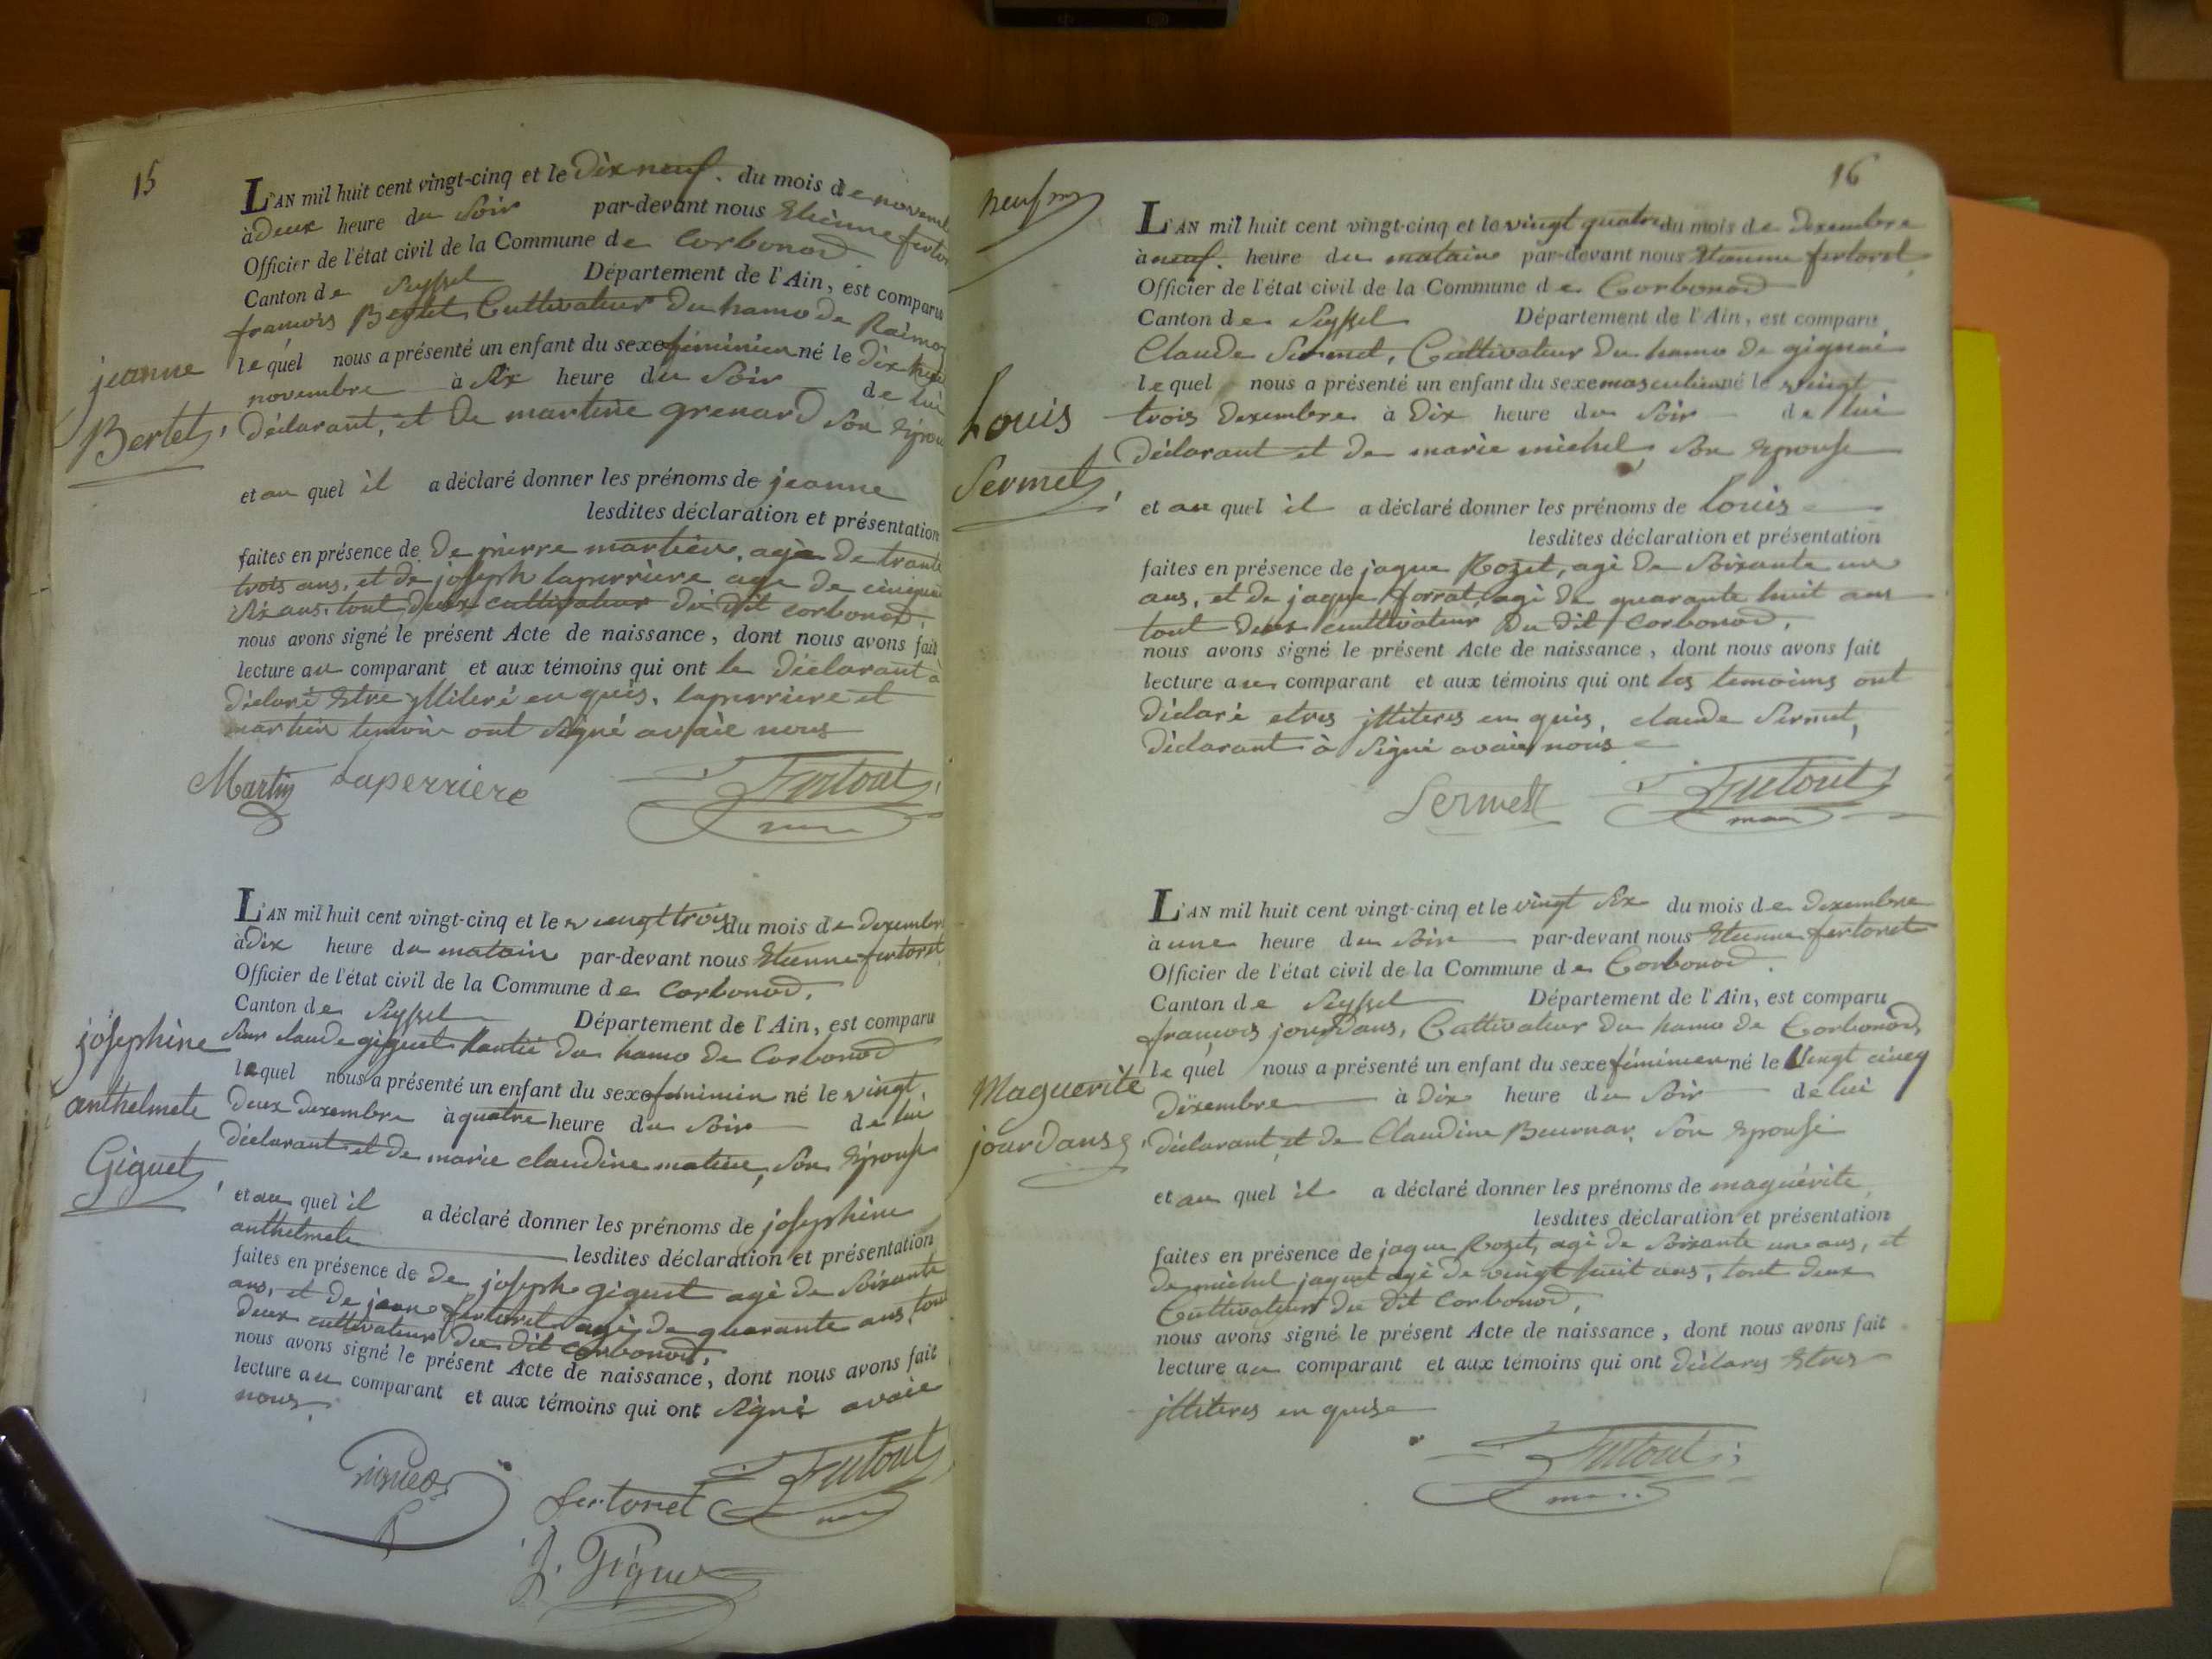 15
L'AN mil huit cent vingt-cinq et le Dix neuf. du mois de novemb
à Deux heure du Soir par-devant nous Etienne fertor
Officier de l'état civil de la Commune de Corbonod
Canton de Seyssel Département de l'Ain, est comparu
francois Bertet Cultivateur du hamo de
lequel nous a présenté un enfant du sexe féminien né le Dix
novembre à Six heure du Soir de lui
jeanne
Bertet,
déclarant, et de martine grenard Son Epou
et au quel il a déclaré donner les prénoms de jeanne
lesdites déclaration et présentation
faites en présence de De pierre martien, agé de trante
trois ans, et de joseph laperriere age de cinquan
Six ans, tout deux cultivateur du dit corbonod,
nous avons signé le présent Acte de naissance, dont nous avons fait
lecture au comparant et aux témoins qui ont le déclarant à
déclaré Estre ylliteré enquis, laperriere et
martien temoin ont Signé avaie nous
Martin Laperriere Fertoret
L'AN mil huit cent vingt-cinq et le vingt trois du mois de dexembre
à dix heure du matain par-devant nous Etienne fertoret
Officier de l'état civil de la Commune de Corbonod,
Canton de Seyssel Département de l'Ain, est comparu
Sieur claude giguet Rantié du hamo de Corbonod
lequel nous a présenté un enfant du sexe féminien né le vingt
deux dexembre à quatre heure du Soir de lui
josephine
anthelmete
Giguet,
déclarant et de marie claudine Son Epouse
et au quel il a déclaré donner les prénoms de josephine
anthelmete lesdites déclaration et présentation
faites en présence de de joseph giguet agé de Soixante
ans, et de jean fertoret agé de quarante ans, tout
deux cultivateur du dit corbonod,
nous avons signé le présent Acte de naissance, dont nous avons fait
lecture au comparant et aux témoins qui ont Signé avaie
nous,
Giguet
fertoret Fertoret
J. Giguet
neuf
16
L'AN mil huit cent vingt-cinq et le vingt quatre du mois de Dexembre
à neuf. heure du matain par-devant nous Etienne fertoret
Officier de l'état civil de la Commune de Corbonod
Canton de Seyssel Département de l'Ain, est comparu
Claude Sermet, Cultivateur du hamo de gignai
lequel nous a présenté un enfant du sexe masculien né le vingt
trois dexembre à Dix heure du Soir de lui
Louis
Sermet,
Déclarant et de marie michel, Son Epouse
et au quel il a déclaré donner les prénoms de Louis
lesdites déclaration et présentation
faites en présence de jaque Rozet, agé de Soixante un
ans, et de jaque forrat, agé de quarante huit ans
tout deux cultivateur Du dit corbonod,
nous avons signé le présent Acte de naissance, dont nous avons fait
lecture au comparant et aux témoins qui ont les temoins ont
Déclaré etres illiteres en quis, claude Sermet,
Déclarant à Signé avaie nous
Sermet Fertoret
L'AN mil huit cent vingt-cinq et le vingt Six du mois de dexembre
à une heure du Soir par-devant nous Etienne fertoret
Officier de l'état civil de la Commune de Corbonod.
Canton de Seyssel Département de l'Ain, est comparu
francois jourdans, Cultivateur du hamo de Corbonod,
lequel nous a présenté un enfant du sexe féminien né le Vingt cincq
Dexembre à Dix heure du Soir de lui
Maguerite
jourdans,
déclarant et de Claudine Beurnar, Son Epouse
et au quel il a déclaré donner les prénoms de maguérite
lesdites déclaration et présentation
faites en présence de jaque Rozet, agé de Soixante une ans, et
de michel jaquet agé de vingt huit ans, tout deux
Cultivateur du Dit Corbonod,
nous avons signé le présent Acte de naissance, dont nous avons fait
lecture au comparant et aux témoins qui ont déclares Etres
illiteres en quise
Fertoret